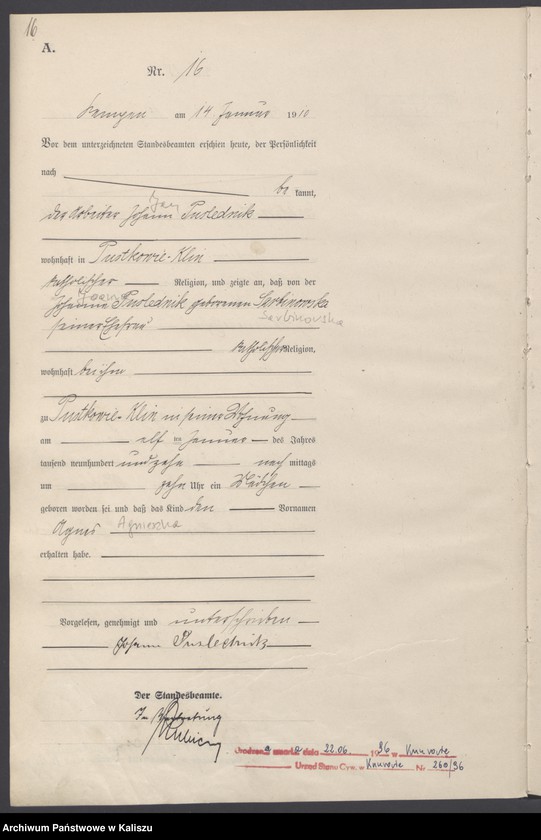 16
A.
Nr. 16
Kempen am 14 Januar 1910
Vor dem unterzeichneten Standesbeamten erschien heute, der Persönlichkeit
nach
be kannt,
Jan
der Arbeiter Johann Puslednik
wohnhaft in Pustkowie-Klin
katholischer Religion, und zeigte an, daß von der
Joanna
Johanna Puslednik geborenen Serbinowska
Serbinowska
seiner Ehefrau
katholischer Religion,
wohnhaft bei ihm
zu Pustkowie-Klin in seiner Wohnung
am elf ten Januar des Jahres
tausend neunhundert und zehn nach mittags
um zehn Uhr ein Mädchen
geboren worden sei und daß das Kind den Vornamen
Agnes Agnieszka
erhalten habe.
Vorgelesen, genehmigt und unterschrieben
Johann Puslednik
Der Standesbeamte.
In Vertretung
a 22.06. 1936 w
Urząd Stanu Cyw. w Nr 260/36
Archiwum Państwowe w Kaliszu